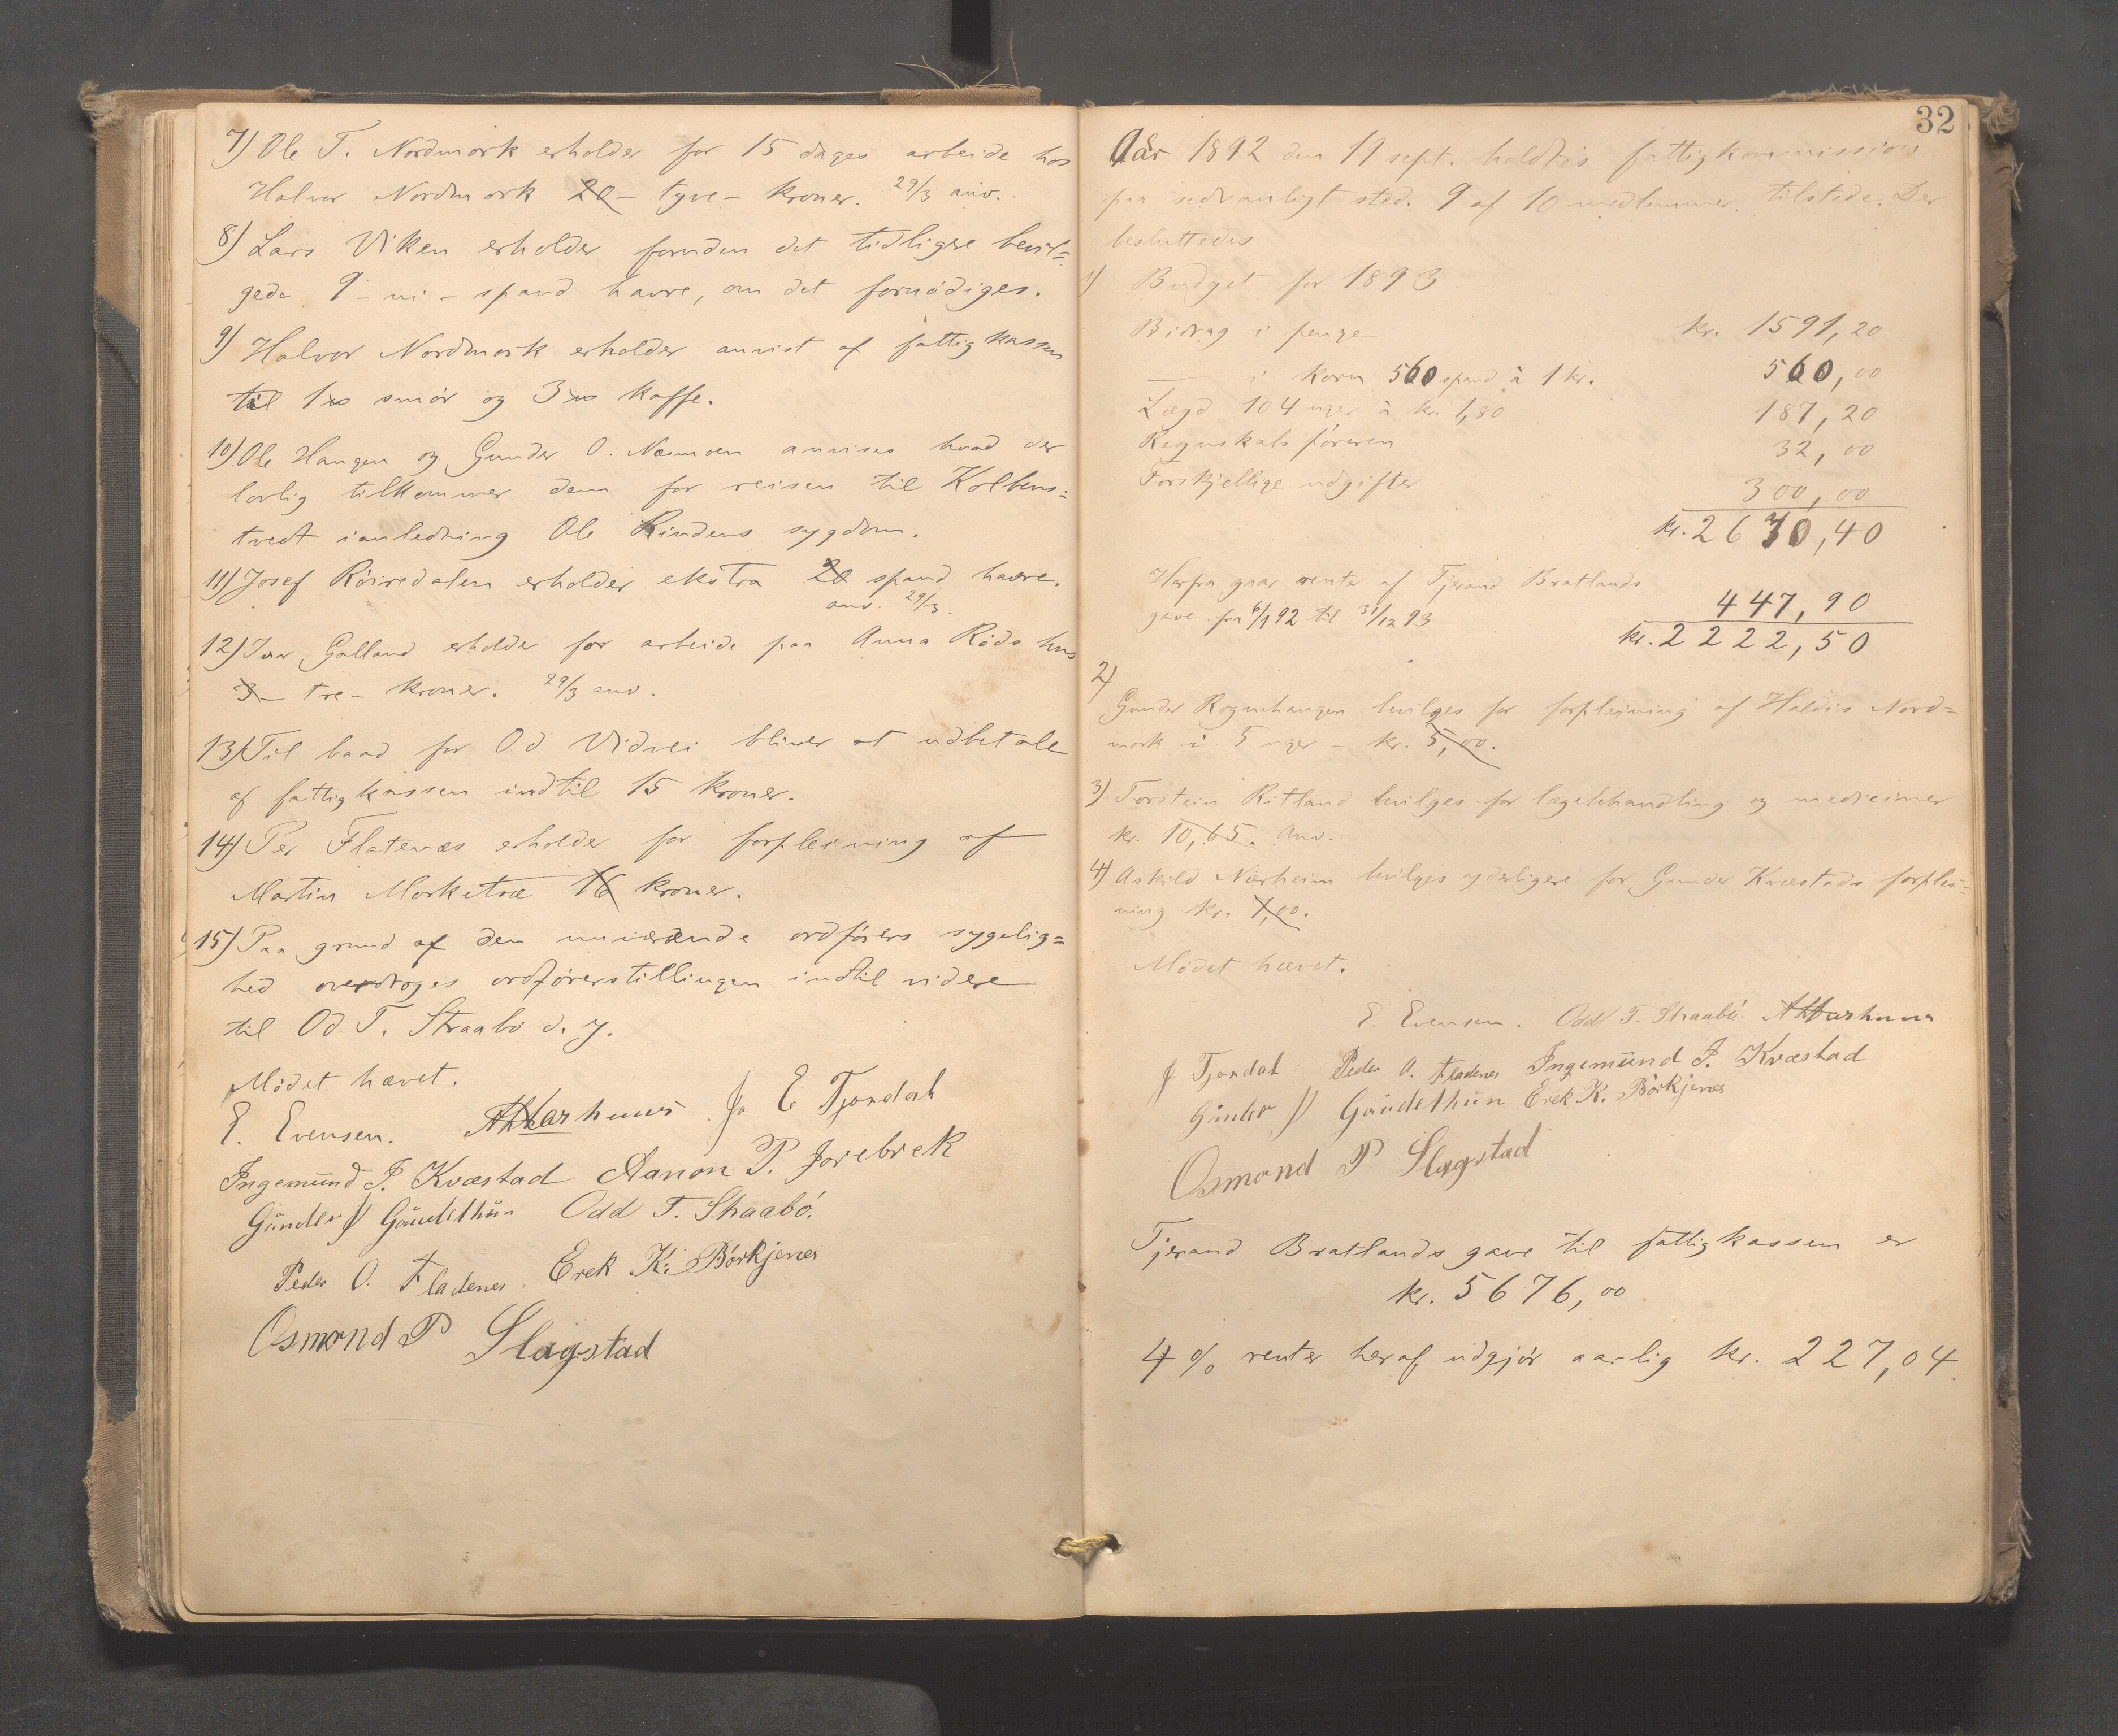 7) Ole T. Nordmork erholder for 15 dages arbeide hos
Halvor Nordmork 20 – tyve – kroner. 29/3 anv.
8) Lars Viken erholder foruden det tidligere bevil=
gede 9 – ni – spand havre, om det fornødiges.
9) Halvor Nordmork erholder anvist af fattigkassen
til 1 smør og 3 kaffe.
10) Ole Haugen og Gunder O. Næsmoen anvises hvad der
lovlig tilkommer dem for reisen til Kolbens=
tvedt i anledning Ole Rindens sygdom.
11) Josef Röiredalen erholder ekstra 20 spand havre.
anv. 29/3.
12) Ivar Galland erholder for arbeide paa Anna Röds hus
3 – tre – kroner. 29/3 anv.
13) Til baad for Od Vidvei bliver at udbetale
af fattigkassen indtil 15 kroner.
14) Per Flatenæs erholder for forpleining af
Martin Morketræ 16 kroner.
15) Paa grund af den nuværende ordförers sygelig=
hed overdroges ordförerstillingen indtil videre
til Od T. Straabö d. y.
Mödet hævet.
E. Evensen. J. E Tjøndal
Ingemund I. Kvæstad Aanon P. Jorebrek
Gunder Gaudethun Odd T. Straabö.
Peder O. Fladenes. Erek K. Börkjenes
Osmond P Slagstad
32
Aar 1892 den 19 sept. holdtes fattigkommission
paa sedvanligt sted. 9 af 10 medlemmer tilstede. Der
besluttedes
1) Budget for 1893
Bidrag i penge kr. 1591,20
— i korn 560 spand à 1 kr. 560,00
Lægd 104 uger à kr. 1,80 187,20
Regnskabsföreren 32,00
Forskjellige udgifter 300,00
kr. 2670,40
Herfra gaar renter af Tjerand Bratlands
gave fra 6/1 92 til 31/12 93 447,90
kr. 2222,50
2)
Gunder Rognehaugen bevilges for forpleining af Haldis Nord=
mork i 5 uger – kr. 5,00.
3) Torstein Ritland bevilges for lægebehandling og mediciner
kr. 10,65. Anv.
4) Askild Nærheim bevilges yderligere for Gunder Kvæstads forplei=
ning kr. 7,00.
Mödet hævet.
E. Evensen. Odd T. Straabö.
J Tjøndal Peder O. Fladenes Ingemund I. Kvæstad
Gunder Gaudethun Erek K. Börkjenes
Osmond P Slagstad
Tjerand Bratlands gave til fattigkassen er
kr. 5676,00
4 % renter heraf udgjör aarlig kr. 227,04.